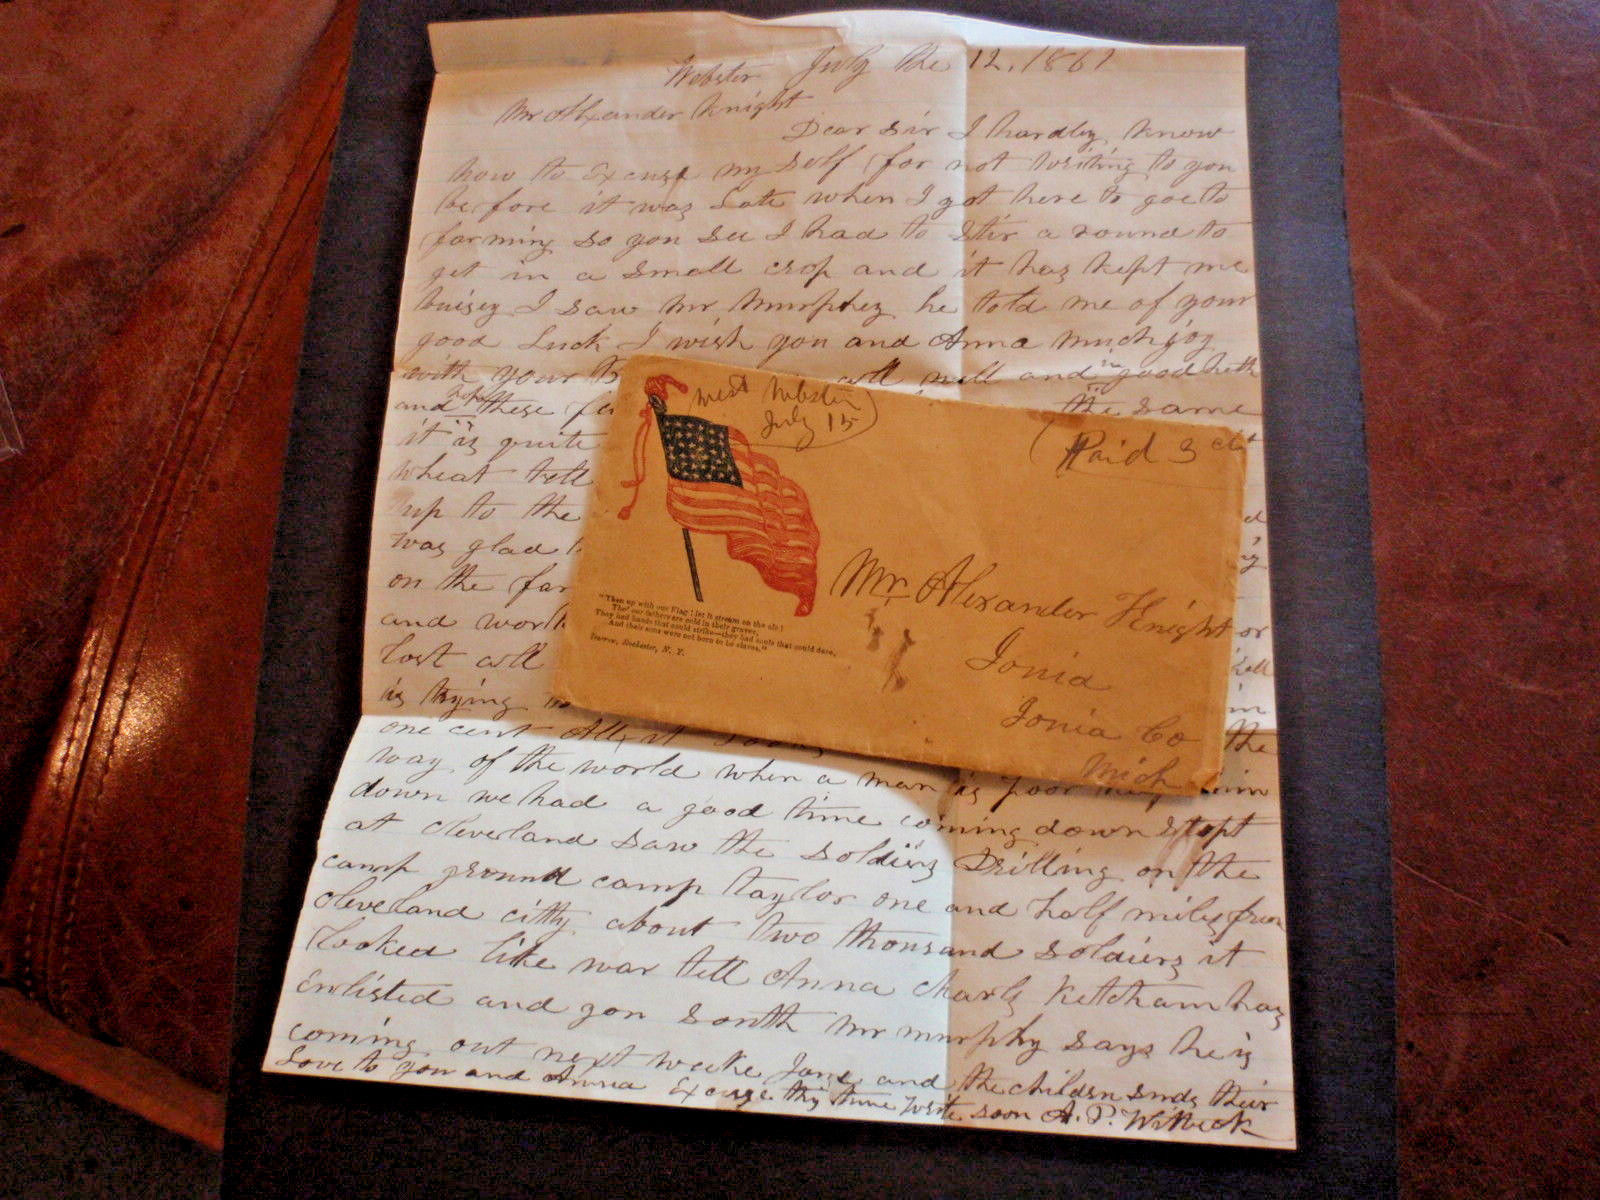 Webster July the 12, 1861
Mr Alexander Knight
Dear Sir I hardly know
how to Excuse my self for not writing to you
before it was Late when I got here to goe to
farming so you see I had to Stir a round to
get in a small crop and it has kept me
buisey I saw Mr Murphey he told me of your
good Luck I wish you and Anna much joy
with your all well and in good helth
and hope these the same
it is quite
wheat tell
up to the
was glad
on the far
and work or
Lost all
is trying in
one cent the
way of the world when a man is poor him
down we had a good time coming down Stopt
at Cleverland saw the soldiers Drilling on the
camp ground camp taylor one and half miles from
Cleveland citty about two thousand soldiers it
looked like war tell Anna Charls Ketcham has
Enlisted and gon South Mr Murphy says he is
coming out next weeke Jane and the children sends their
Love to you and Anna Excuse this time write soon A. P. Witbeck
West Webster
July 15
Paid 3 cts
Mr Alexander Knight
Ionia
Ionia Co
Mich
"Then up with our Flag! let it stream on the air!
Tho' our fathers are cold in their graves,
They had hands that could strike—they had souls that could dare,
And their sons were not born to be slaves."
Rochester, N. Y.